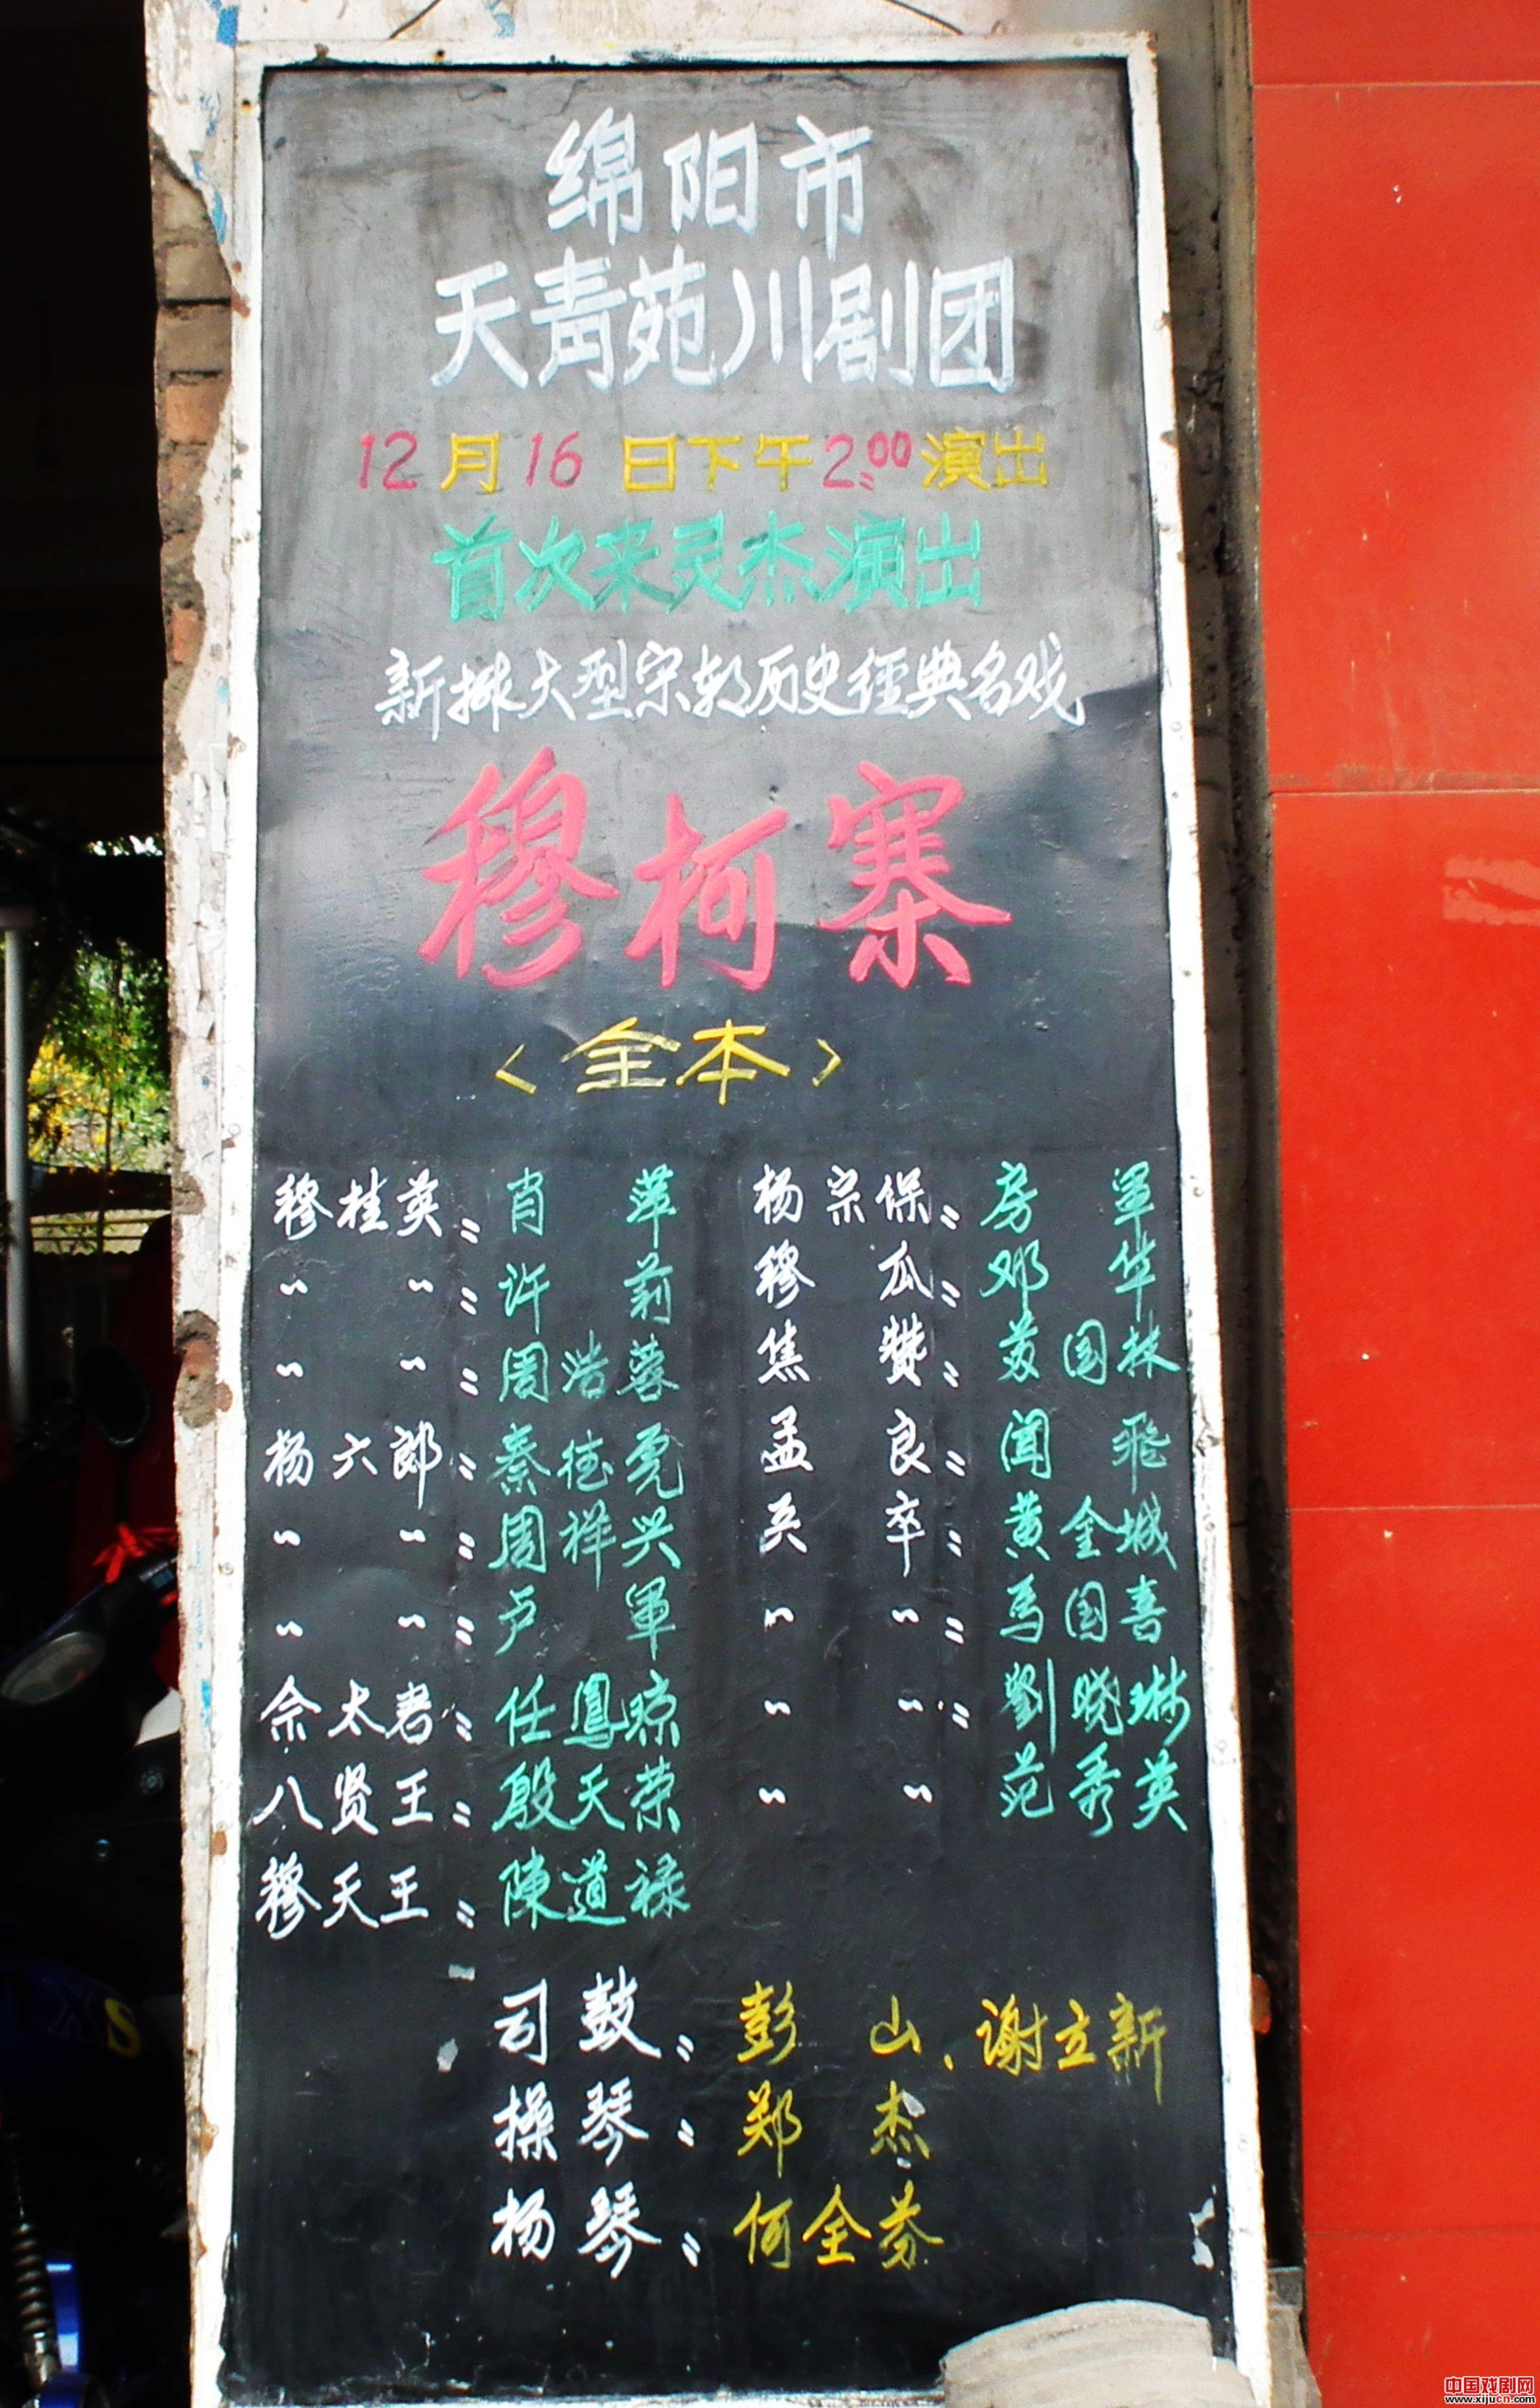 绵阳市
天青苑川剧团
12月16日下午2:00演出
首次来灵杰演出
新排大型宋朝历史经典名戏
穆柯寨
<全本>
穆桂英: 肖萍 杨宗保: 房军
〃 〃: 许莉 穆瓜: 邓华
〃 〃: 周浩蓉 焦赞: 国林
杨六郎: 秦德虎 孟良: 闻飞
〃 〃: 周祥兴 兵卒: 黄金城
〃 〃: 卢軍 〃 〃: 马国喜
佘太君: 任鳳琼 〃 〃: 劉晓琳
八贤王: 殷天荣 〃 〃 范秀英
穆天王: 陳道禄
司鼓: 彭山、谢立新
操琴: 郑杰
杨琴: 何全芬
中国戏剧网
www.xijucn.com